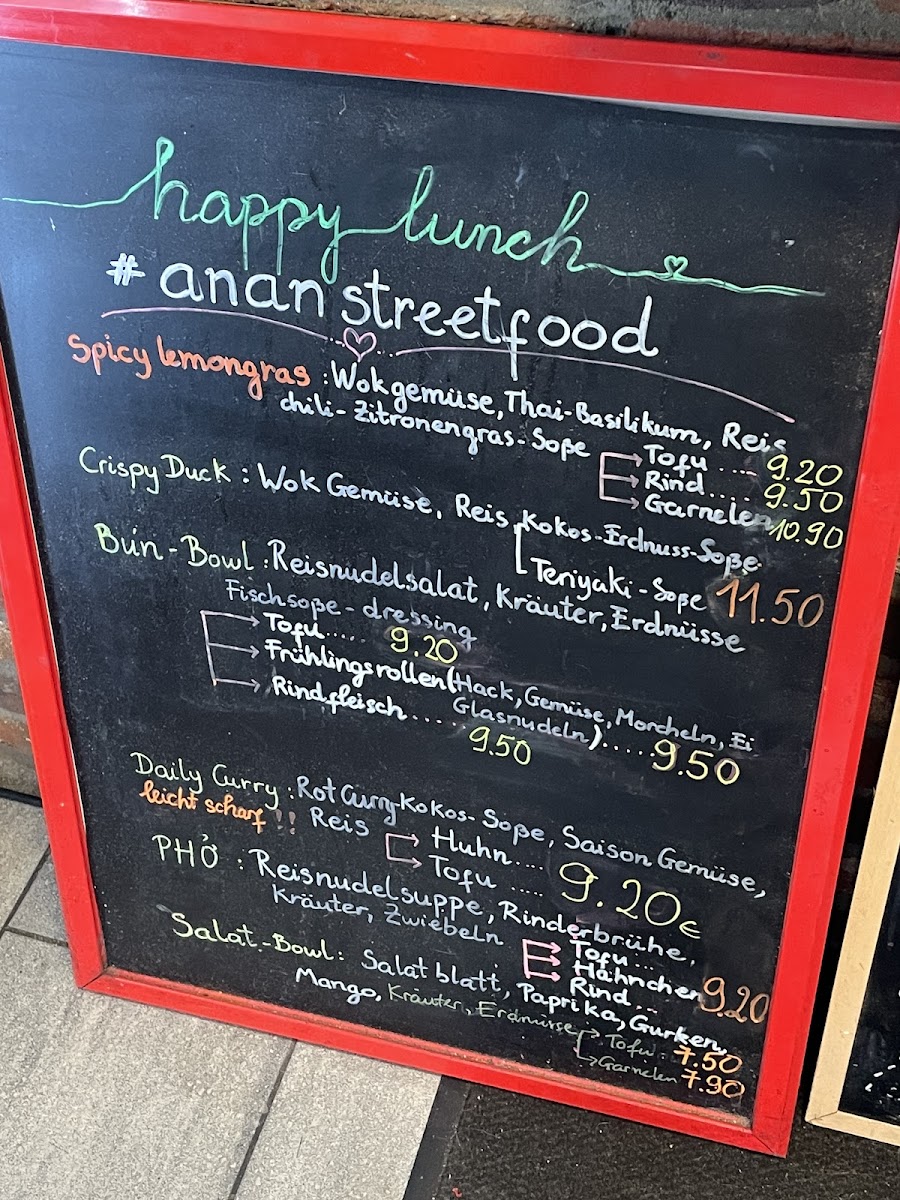 happy lunch
# anan streetfood
Spicy lemongras : Wokgemüse, Thai-Basilikum, Reis
chili-Zitronengras-Soße
Tofu .... 9.20
Rind .... 9.50
Garnelen 10.90
Crispy Duck : Wok Gemüse, Reis, Kokos-Erdnuss-Soße
Teriyaki-Soße 11.50
Bún-Bowl : Reisnudelsalat, Kräuter, Erdnüsse
Fischsoße-dressing
Tofu ..... 9.20
Frühlingsrollen (Hack, Gemüse, Morcheln, Ei
Glasnudeln) ..... 9.50
Rindfleisch ..... 9.50
Daily Curry : Rot Curry-Kokos-Soße, Saison Gemüse,
leicht scharf !! Reis
Huhn ....
Tofu ..... 9.20€
PHỞ : Reisnudelsuppe, Rinderbrühe,
Kräuter, Zwiebeln
Tofu ...
Hähnchen 9.20
Rind ...
Salat-Bowl : Salatblatt, Paprika, Gurken,
Mango, Kräuter, Erdnüsse
Tofu . 7.50
Garnelen 7.90